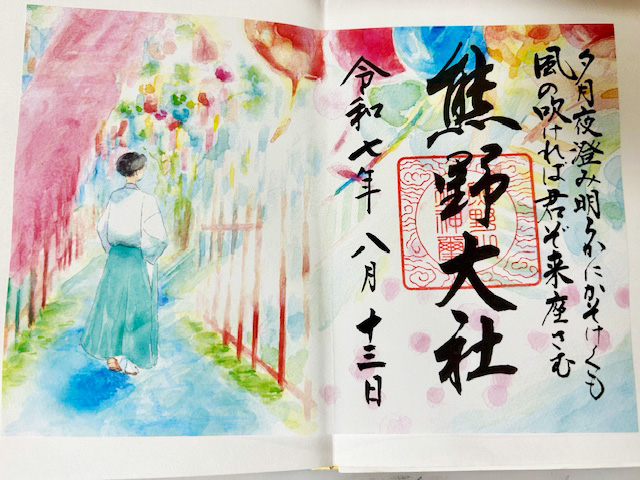 夕月夜澄み明らかにかそけくも
風の吹ければ君ぞ来座さむ
熊野大社
令和七年 八月 十三日